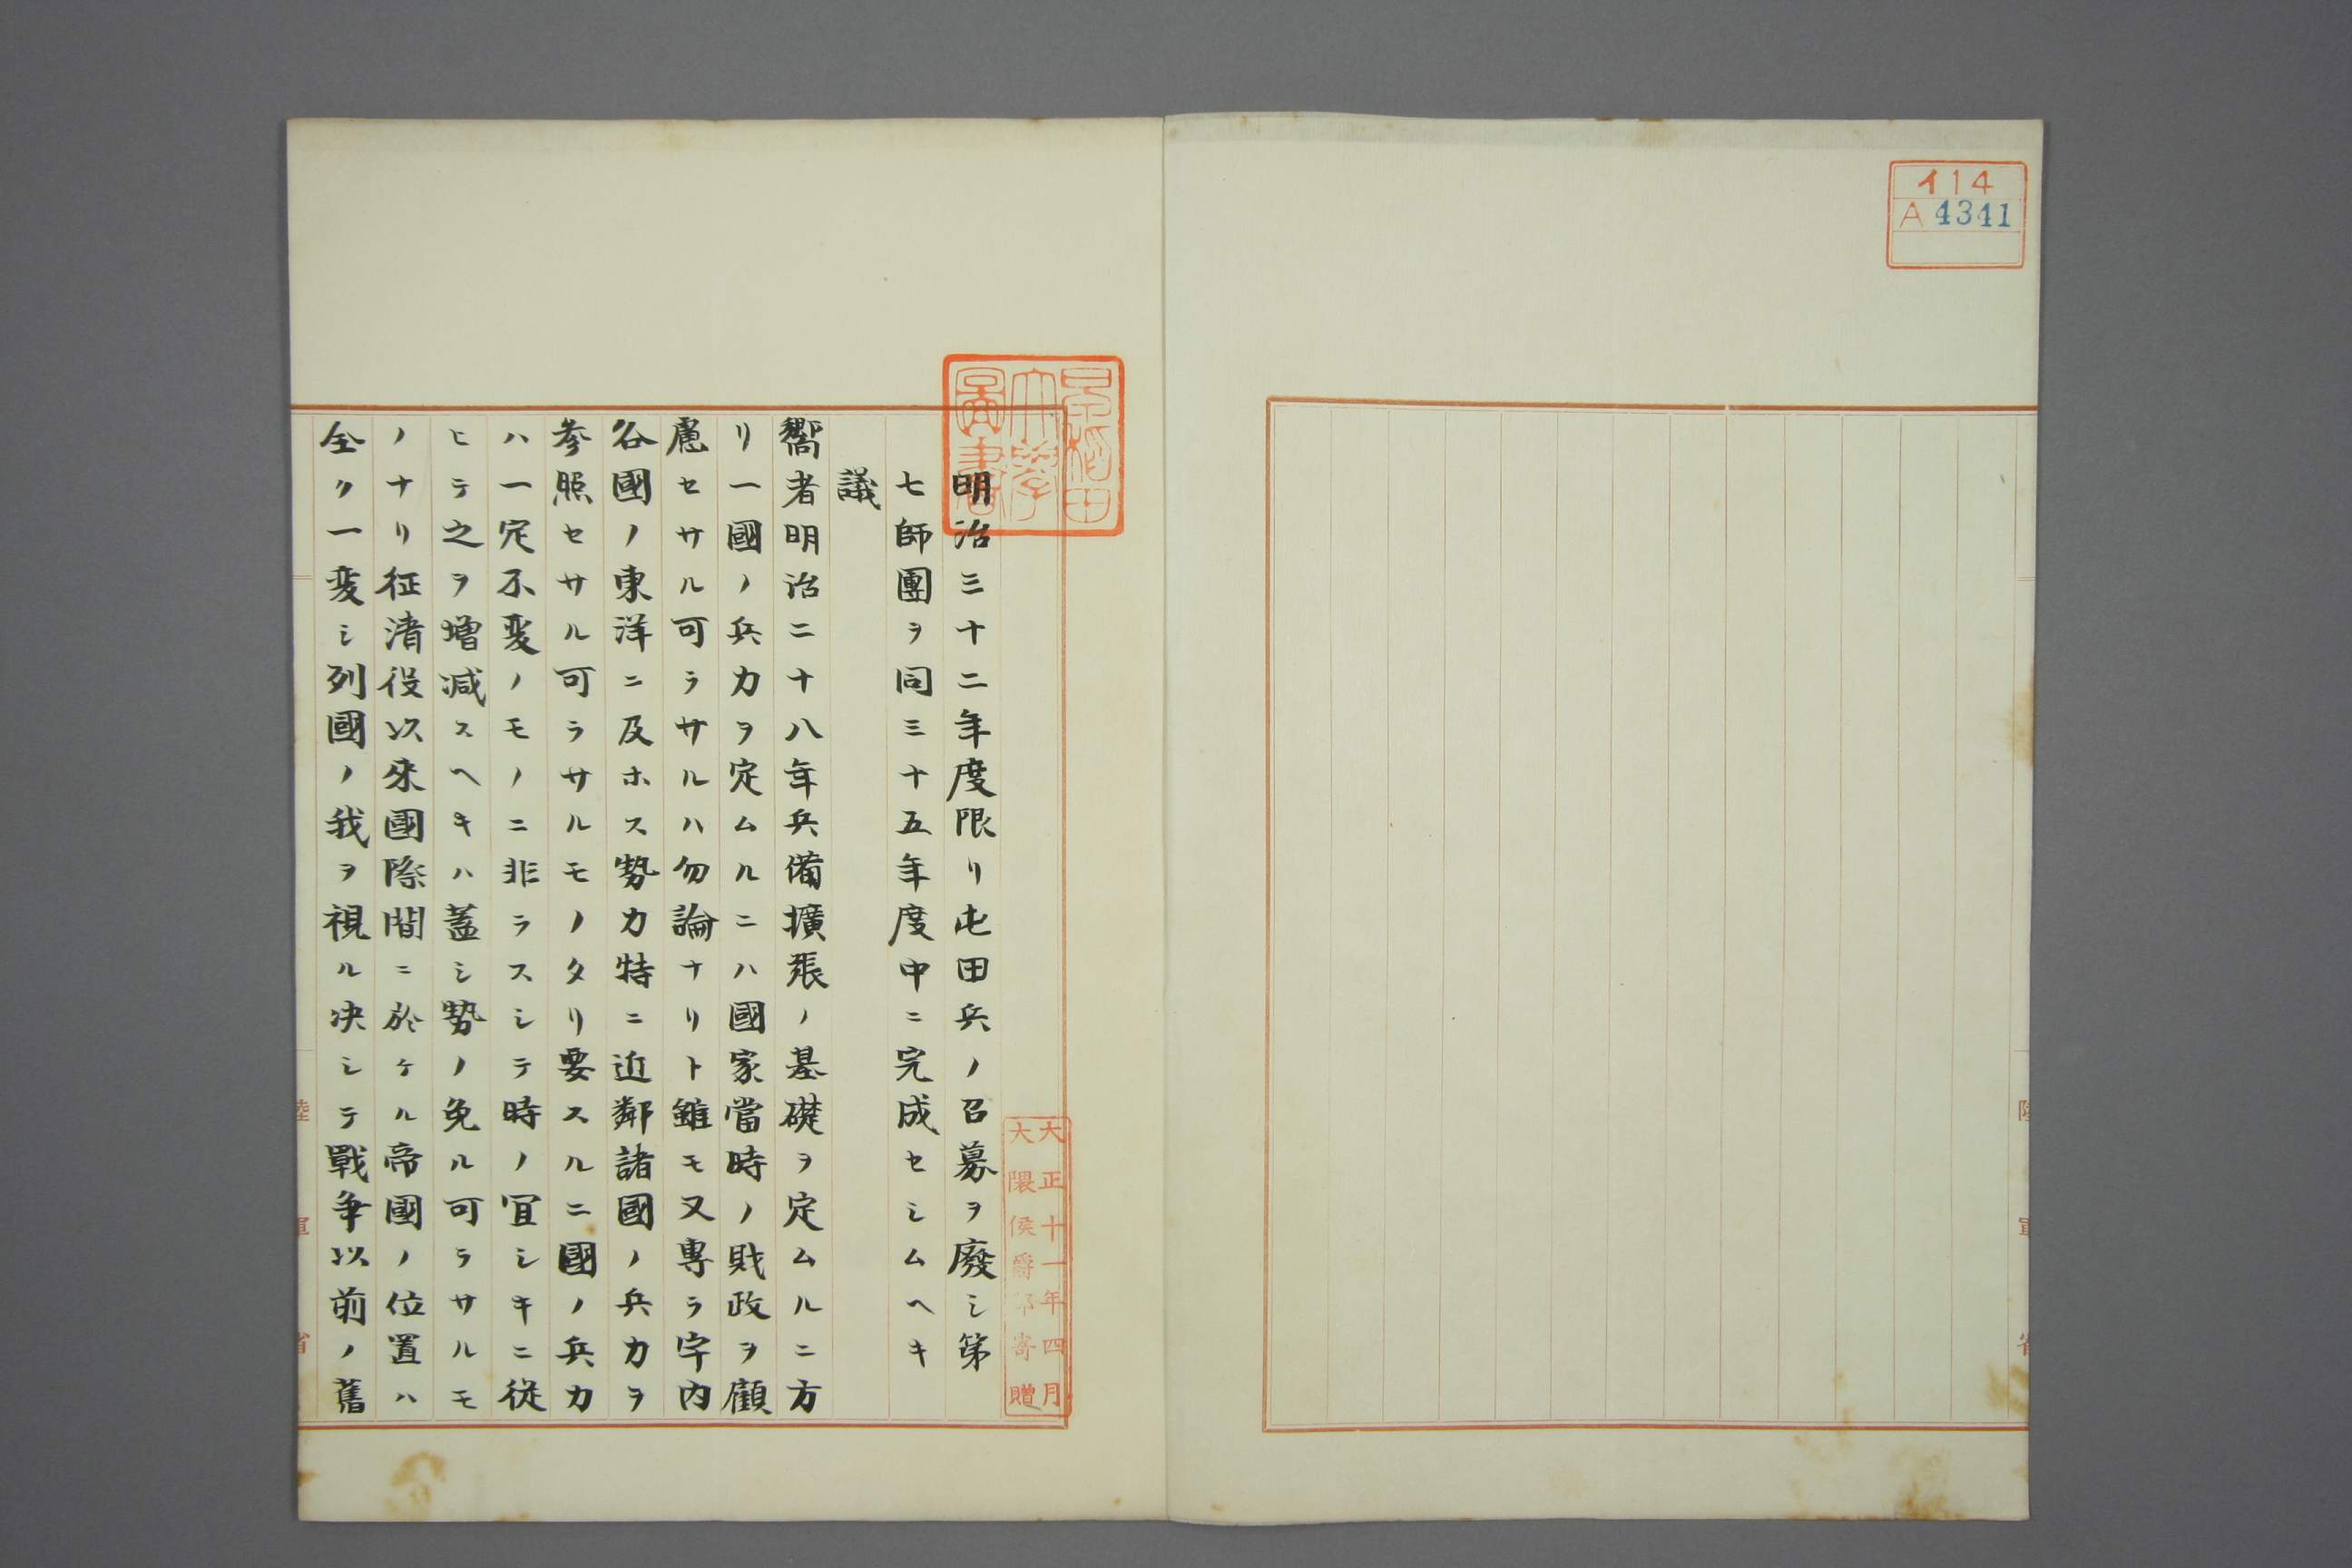 イ14
A 4341
陸軍省
早稲田
大學
圖書
大正十一年四月
大隈侯爵邸寄贈
明治三十二年度限リ屯田兵ノ召募ヲ廢シ第
七師團ヲ同三十五年度中ニ完成セシムヘキ
議
嚮者明治二十八年兵備擴張ノ基礎ヲ定ムルニ方
リ一國ノ兵力ヲ定ムルニハ國家當時ノ財政ヲ顧
慮セサル可ラサルハ勿論ナリト雖モ又專ラ宇内
各國ノ東洋ニ及ホス勢力特ニ近鄰諸國ノ兵力ヲ
參照セサル可ラサルモノタリ要スルニ國ノ兵力
ハ一定不変ノモノニ非ラスシテ時ノ宜シキニ從
ヒテ之ヲ增減スヘキハ蓋シ勢ノ免ル可ラサルモ
ノナリ征清役以來國際間ニ於ケル帝國ノ位置ハ
全ク一変シ列國ノ我ヲ視ル决シテ戰争以前ノ舊
陸軍省